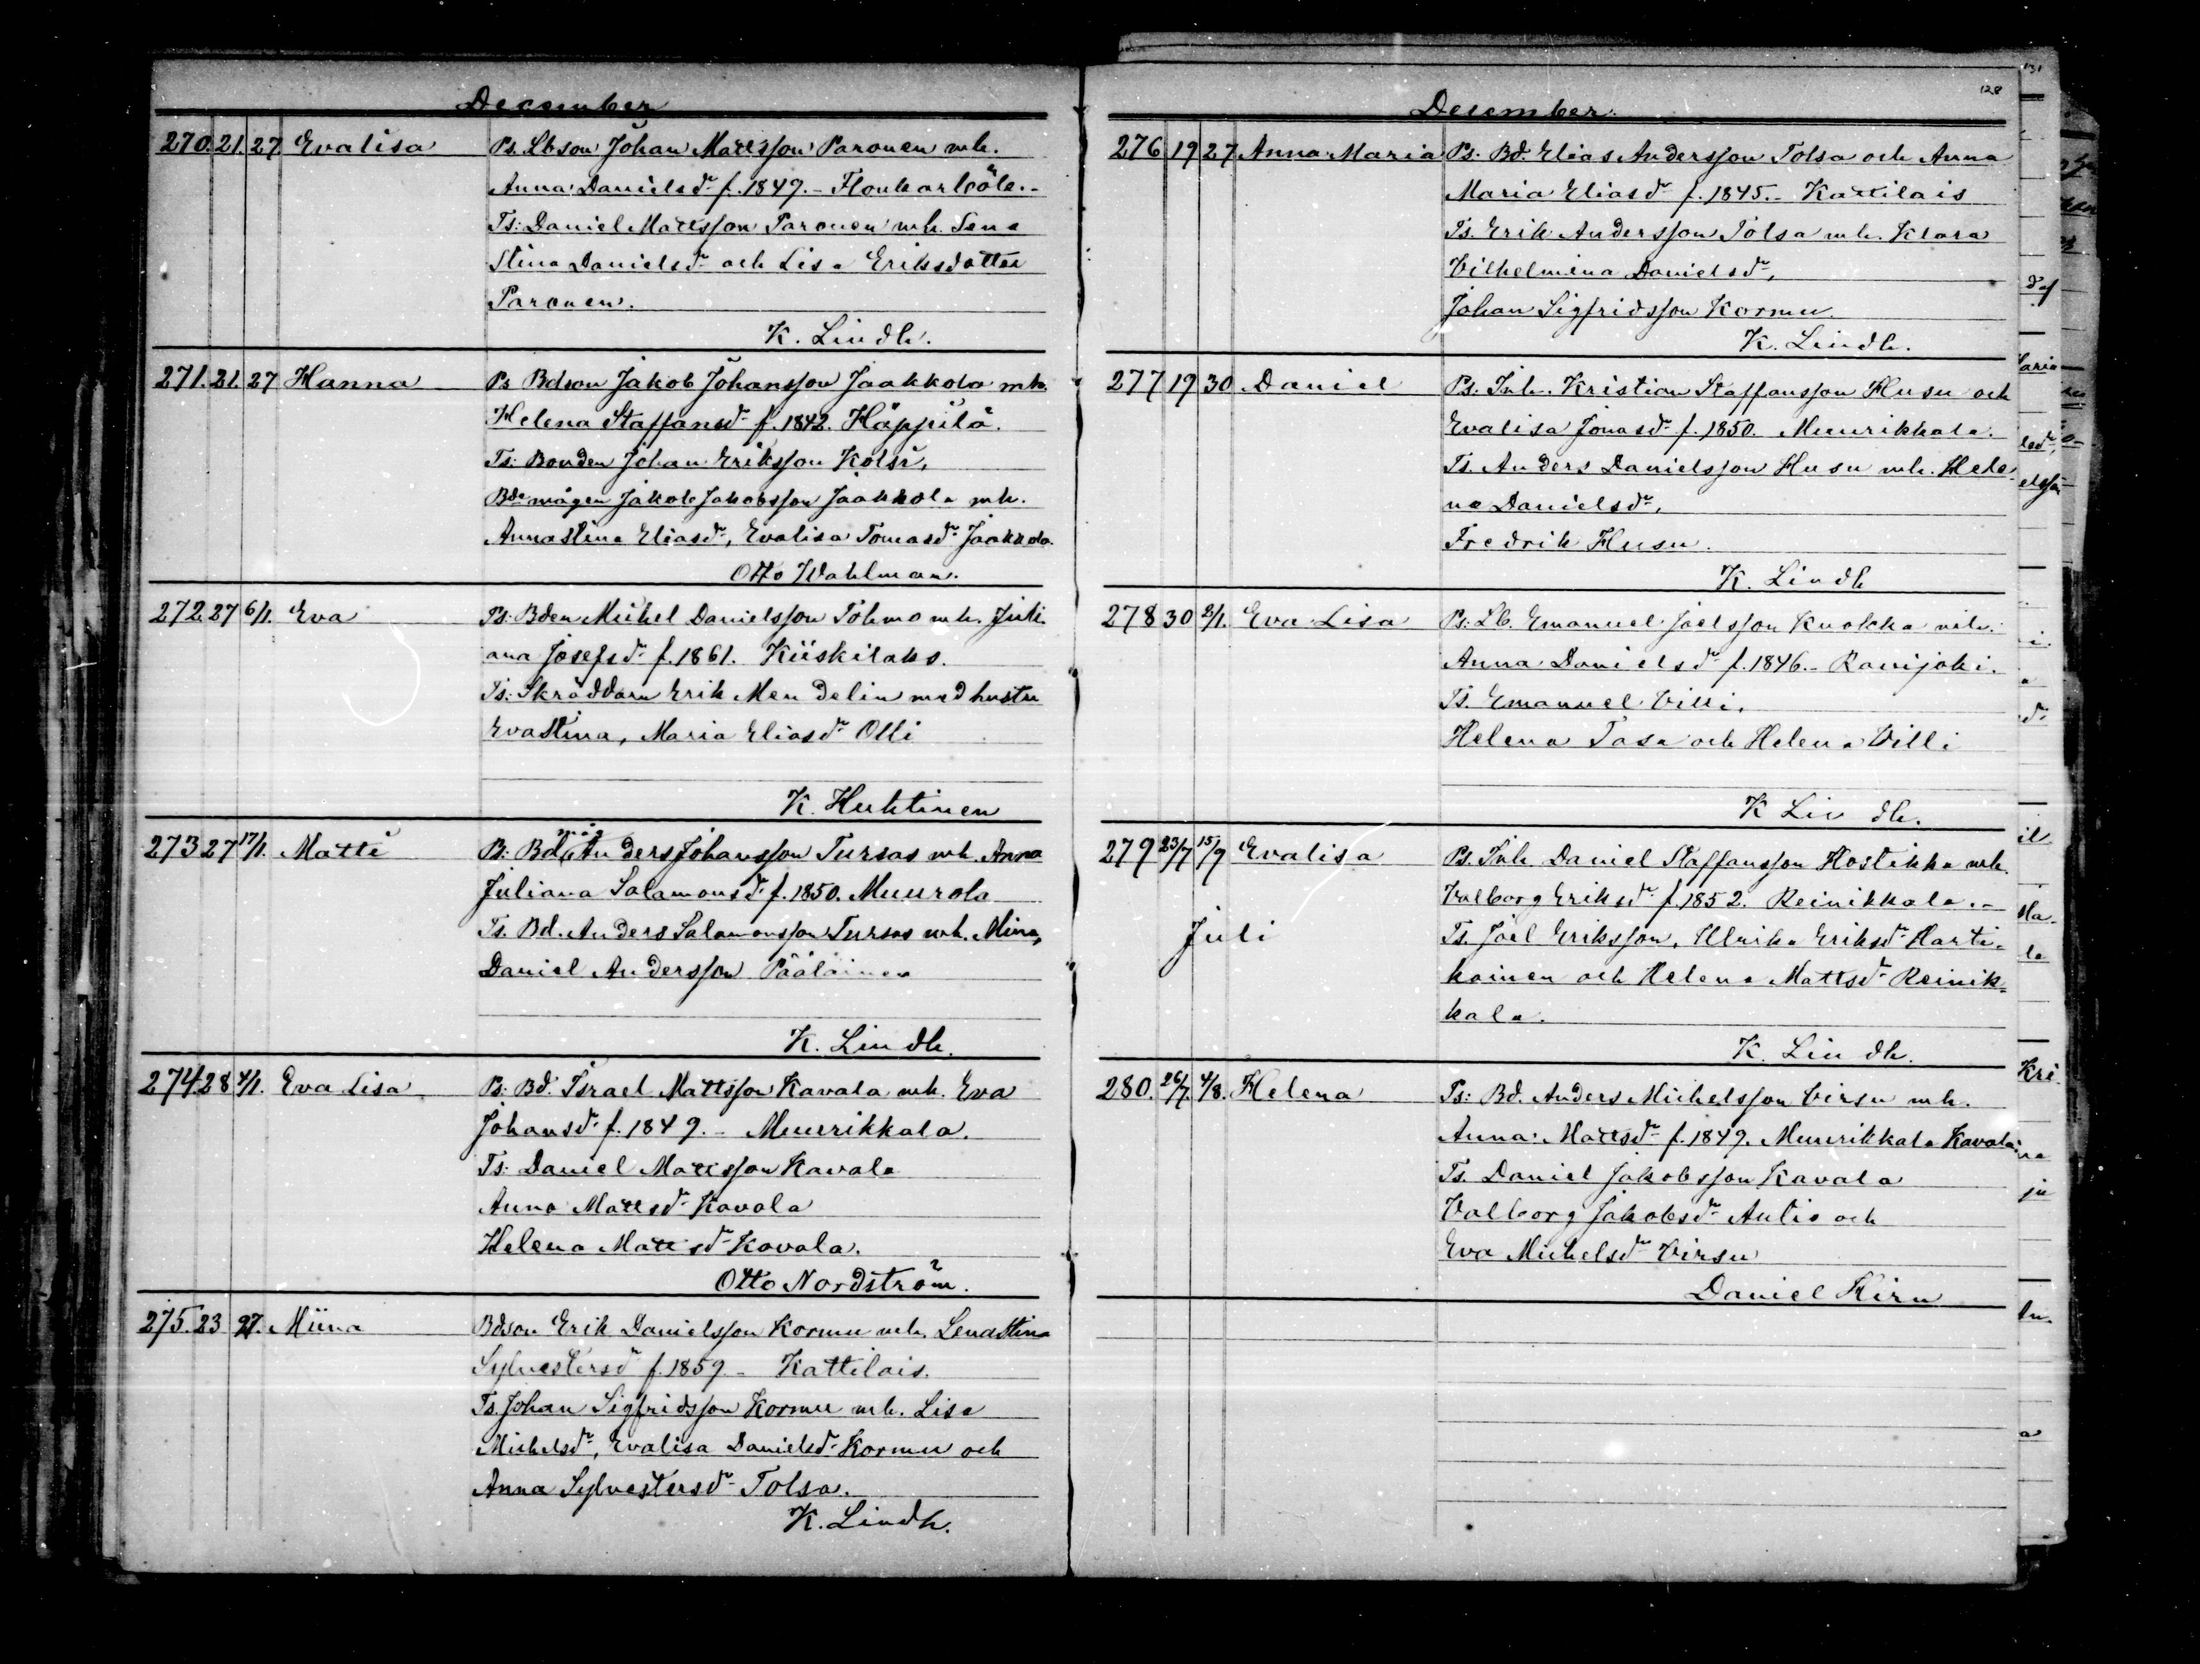 December
270. 21. 27. Evalisa Ps. Lbson Johan Mattsson Paronen mh.
Anna Danielsdr f. 1849. -
Ts: Daniel Mattsson Paronen mh. Lena
Stina Danielsdr och Lisa Eriksdotter
Paronen.
K. Lindh.
271. 21. 27 Hanna Ps Bdson Jakob Johansson Jaakkola mh.
Helena Staffansdr f. 1842. Häppilä.
Ts: Bonden Johan Eriksson Kolsi,
Bdemågen Jakob Jakobsson Jaakkola mh.
Annastina Eliasdr, Evalisa Tomasdr Jaakkola.
Otto Wahlman.
272. 27 6/1. Eva Ps: Bden Mickel Danielsson Tohmo mh. Juli-
ana Josefsdr f. 1861. Kiiskilaks.
Ts: Skräddarn Erik Mendelin med hustru
Evastina, Maria Eliasdr Olli
K. Huhtinen
273 27 17/1. Matti Ps. Bdmåg Anders Johansson Tursas mh. Anna
Juliana Salamonsdr f. 1850. Muurola
Ts. Bd. Anders Salamonsson Tursas mh. Mina,
Daniel Andersson Pääläinen
K. Lindh.
274 28 4/1. Eva Lisa Ps. Bd. Israel Mattsson Kavala mh. Eva
Johansdr f. 1849. - Muurikkala.
Ts: Daniel Mattsson Kavala
Anna Mattsdr Kavala
Helena Mattsdr Kavala.
Otto Nordström.
275. 23 27. Miina Bdson Erik Danielsson Kormu mh. Lenastina
Sylvestersdr f. 1859 - Kattilais.
Ts. Johan Sigfridsson Kormu mh. Lisa
Mickelsdr, Evalisa Danielsdr Kormu och
Anna Sylvestersdr Tolsa.
K. Lindh.
128
December
276 19 27 Anna Maria Ps. Bd. Elias Andersson Tolsa och Anna
Maria Eliasdr f. 1845. - Kattilais
Ts. Erik Andersson Tolsa mh. Klara
Vilhelmina Danielsdr,
Johan Sigfridsson Kormu.
K. Lindh.
277 19 30 Daniel Ps: Inh. Kristian Staffansson Husu och
Evalisa Jonasdr f. 1850. Muurikkala.
Ts. Anders Danielsson Husu mh. Hele-
na Danielsdr,
Fredrik Husu.
K. Lindh
278 30 2/1. Eva Lisa Ps: Lb. Emanuel Joelsson Kuokka mh.
Anna Danielsdr f. 1846. - Ravijoki.
Ts. Emanuel Villi,
Helena Tasa och Helena Villi
K Lindh.
279 23/7 15/9 Evalisa Ps. Inh. Daniel Staffansson Hostikka mh.
Valborg Eriksdr f. 1852. Reinikkala. -
Juli Ts. Joel Eriksson, Ulrika Eriksdr Harti-
kainen och Helena Mattsdr Reinik-
kala.
K. Lindh.
280. 26/7. 4/8. Helena Ps: Bd. Anders Michelsson Virsu mh.
Anna Mattsdr f. 1849. Muurikkala Kavala.
Ts. Daniel Jakobsson Kavala
Valborg Jakobsdr Antis och
Eva Michelsdr Virsu
Daniel Hirn